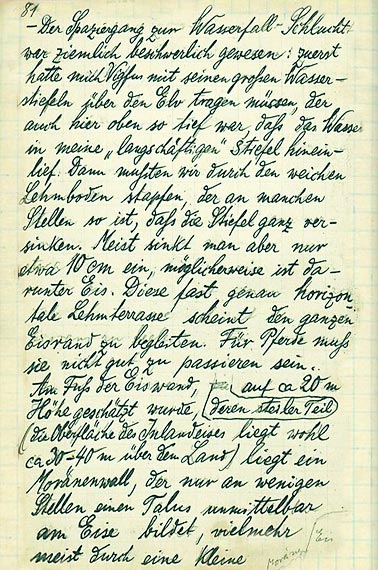 81
– Der Spaziergang zur Wasserfall-Schlucht
war ziemlich beschwerlich gewesen: zuerst
hatte mich Vigfus mit seinen großen Wasser-
stiefeln über den Elv tragen müssen, der
auch hier oben so tief war, daß das Wasser
in meine „langschäftigen" Stiefel hinein-
lief. Dann mußten wir durch den weichen
Lehmboden stapfen, der an manchen
Stellen so ist, daß die Stiefel ganz ver-
sinken. Meist sinkt man aber nur
etwa 10 cm ein, möglicherweise ist da-
runter Eis. Diese fast genau horizon
tale Lehmterrasse scheint den ganzen
Eisrand zu begleiten. Für Pferde muß
sie nicht gut zu passieren sein.
Am Fuß der Eiswand, auf ca 20 m
Höhe geschätzt wurde, deren steiler Teil
(die Oberfläche des Inlandeises liegt wohl
ca 30–40 m über dem Land) liegt ein
Moränenwall, der nur an wenigen
Stellen einen Talus unmittelbar
am Eise bildet, vielmehr
meist durch eine kleine
Eis
Moräne